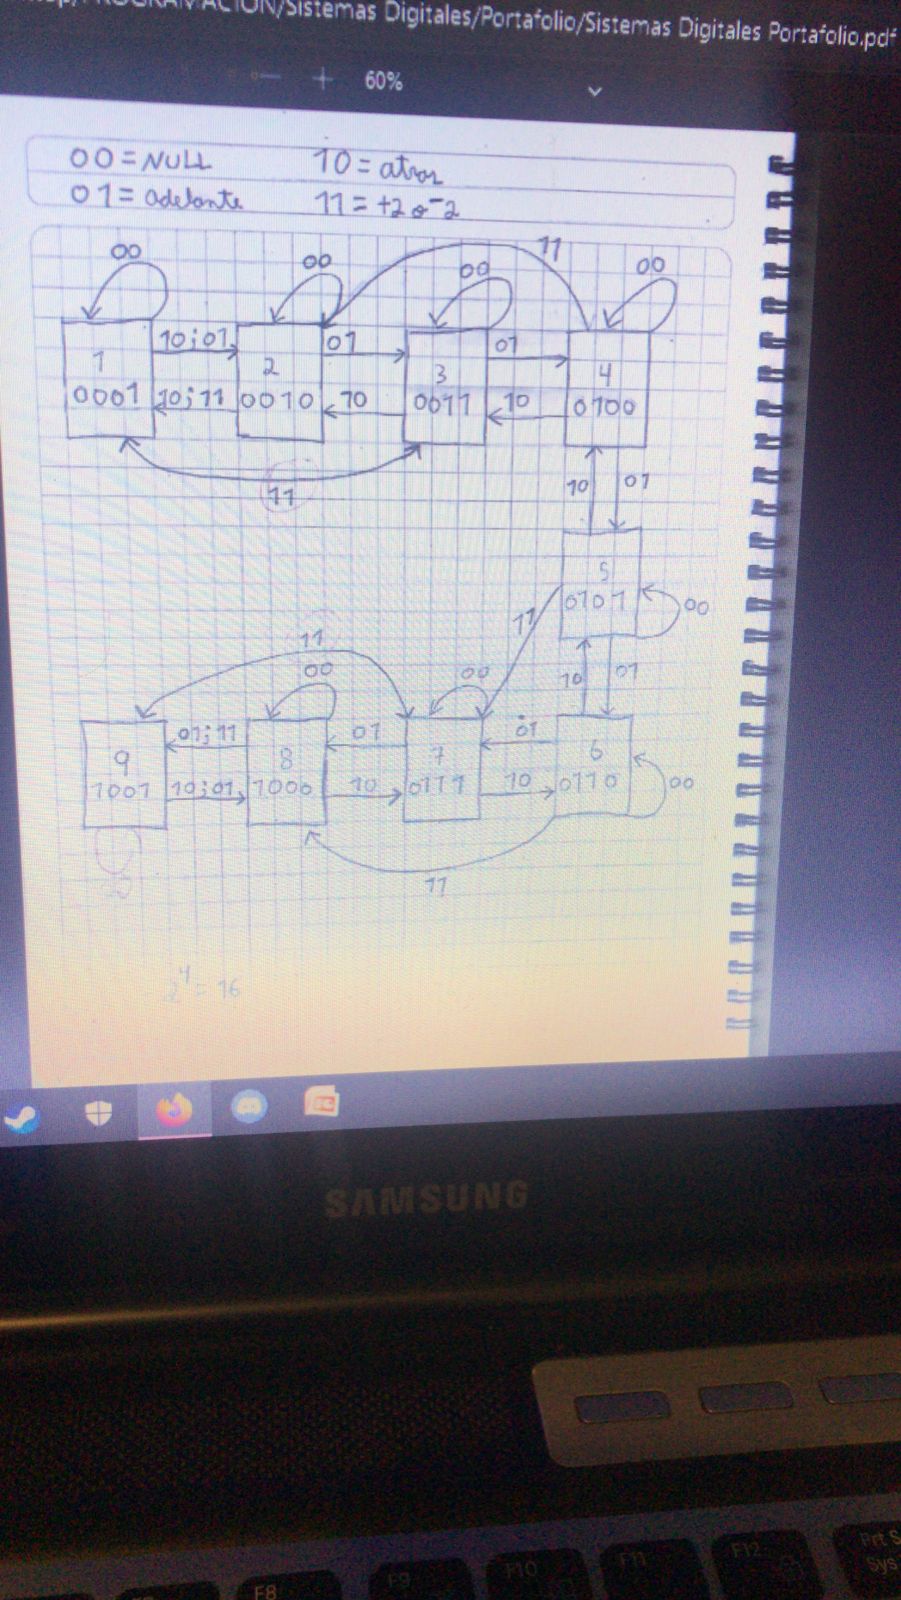 /Sistemas Digitales/Portafolio/Sistemas Digitales Portafolio.pdf
— + 60%
00=NULL 10=atras
01=adelante 11=+2 o -2
00 00 00 11 00
10;01 01 01
1 2 3 4
0001 10;11 0010 10 0011 10 0100
11
10 01
5
0101 00
11
10 01
11
00 00
01;11 01 01
9 8 7 6
1001 10;01 1000 10 0111 10 0110 00
11
2^4=16
SAMSUNG
F8 F9 F10 F11 F12 Prt S
Sys